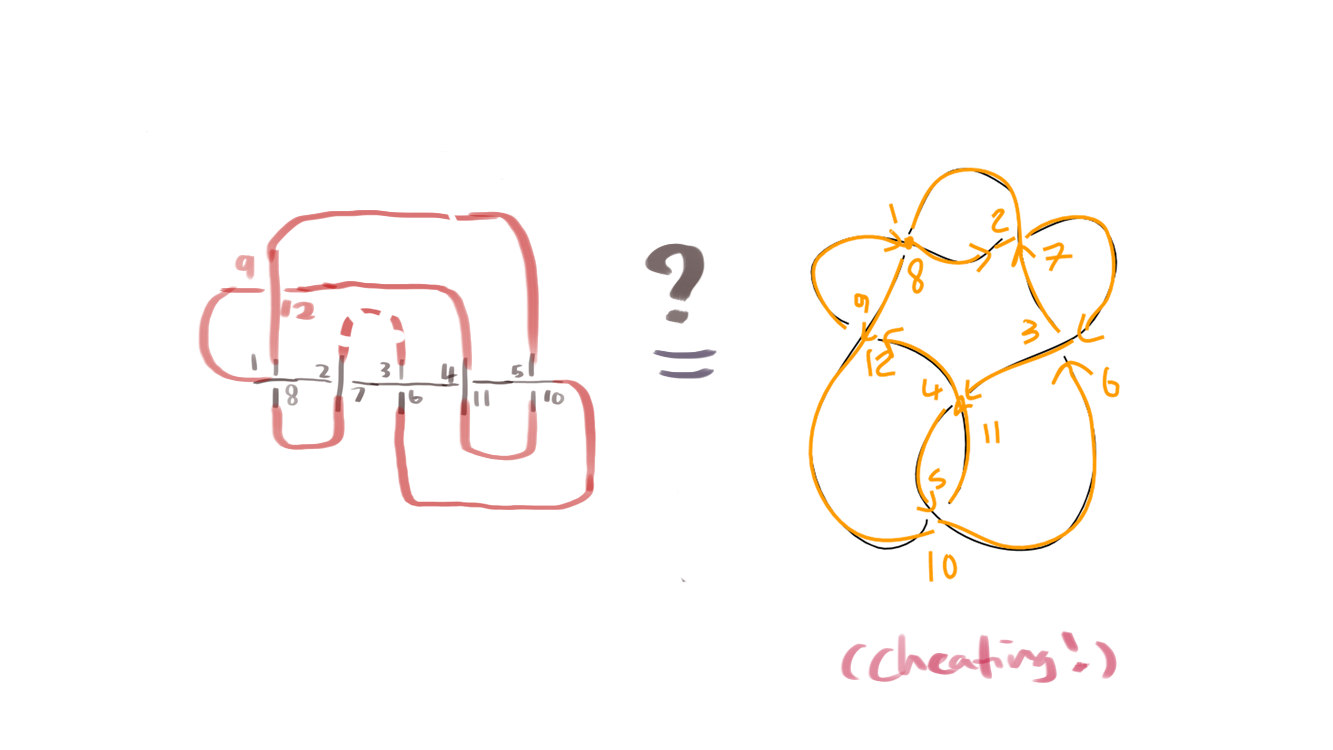 9
12
1 2 3 4 5
8 7 6 11 10
?
=
1 2
8 7
9 3
12 4 6
11
5
10
(cheating!)